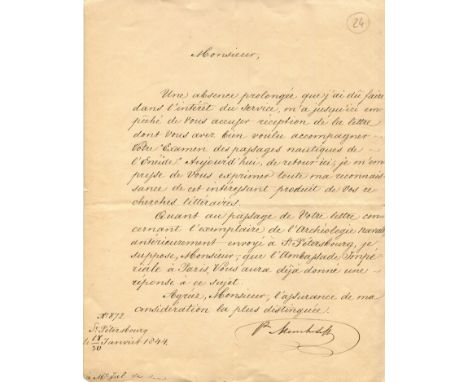 24
Monsieur,
Une absence prolongée que j'ai dû faire
dans l'intérêt du service, m'a jusqu'ici em-
pêché de Vous accuser réception de la lettre
dont Vous avez bien voulu accompagner
Votre "Examen des passages nautiques de
l'Enéide". Aujourd'hui, de retour ici, je m'em-
presse de Vous exprimer toute ma reconnais-
sance de cet intéressant produit de Vos re-
cherches littéraires.
Quant au passage de Votre lettre con-
cernant l'exemplaire de l'Archéologie navale
antérieurement envoyé à St. Pétersbourg, je
suppose, Monsieur, que l'Ambassade Impé-
riale à Paris, Vous aura déjà donné une
réponse à ce sujet.
Agréez, Monsieur, l'assurance de ma
considération la plus distinguée.
Nº 872.
St. Pétersbourg
le 18/30 Janvier 1844.
à Mr. Jal